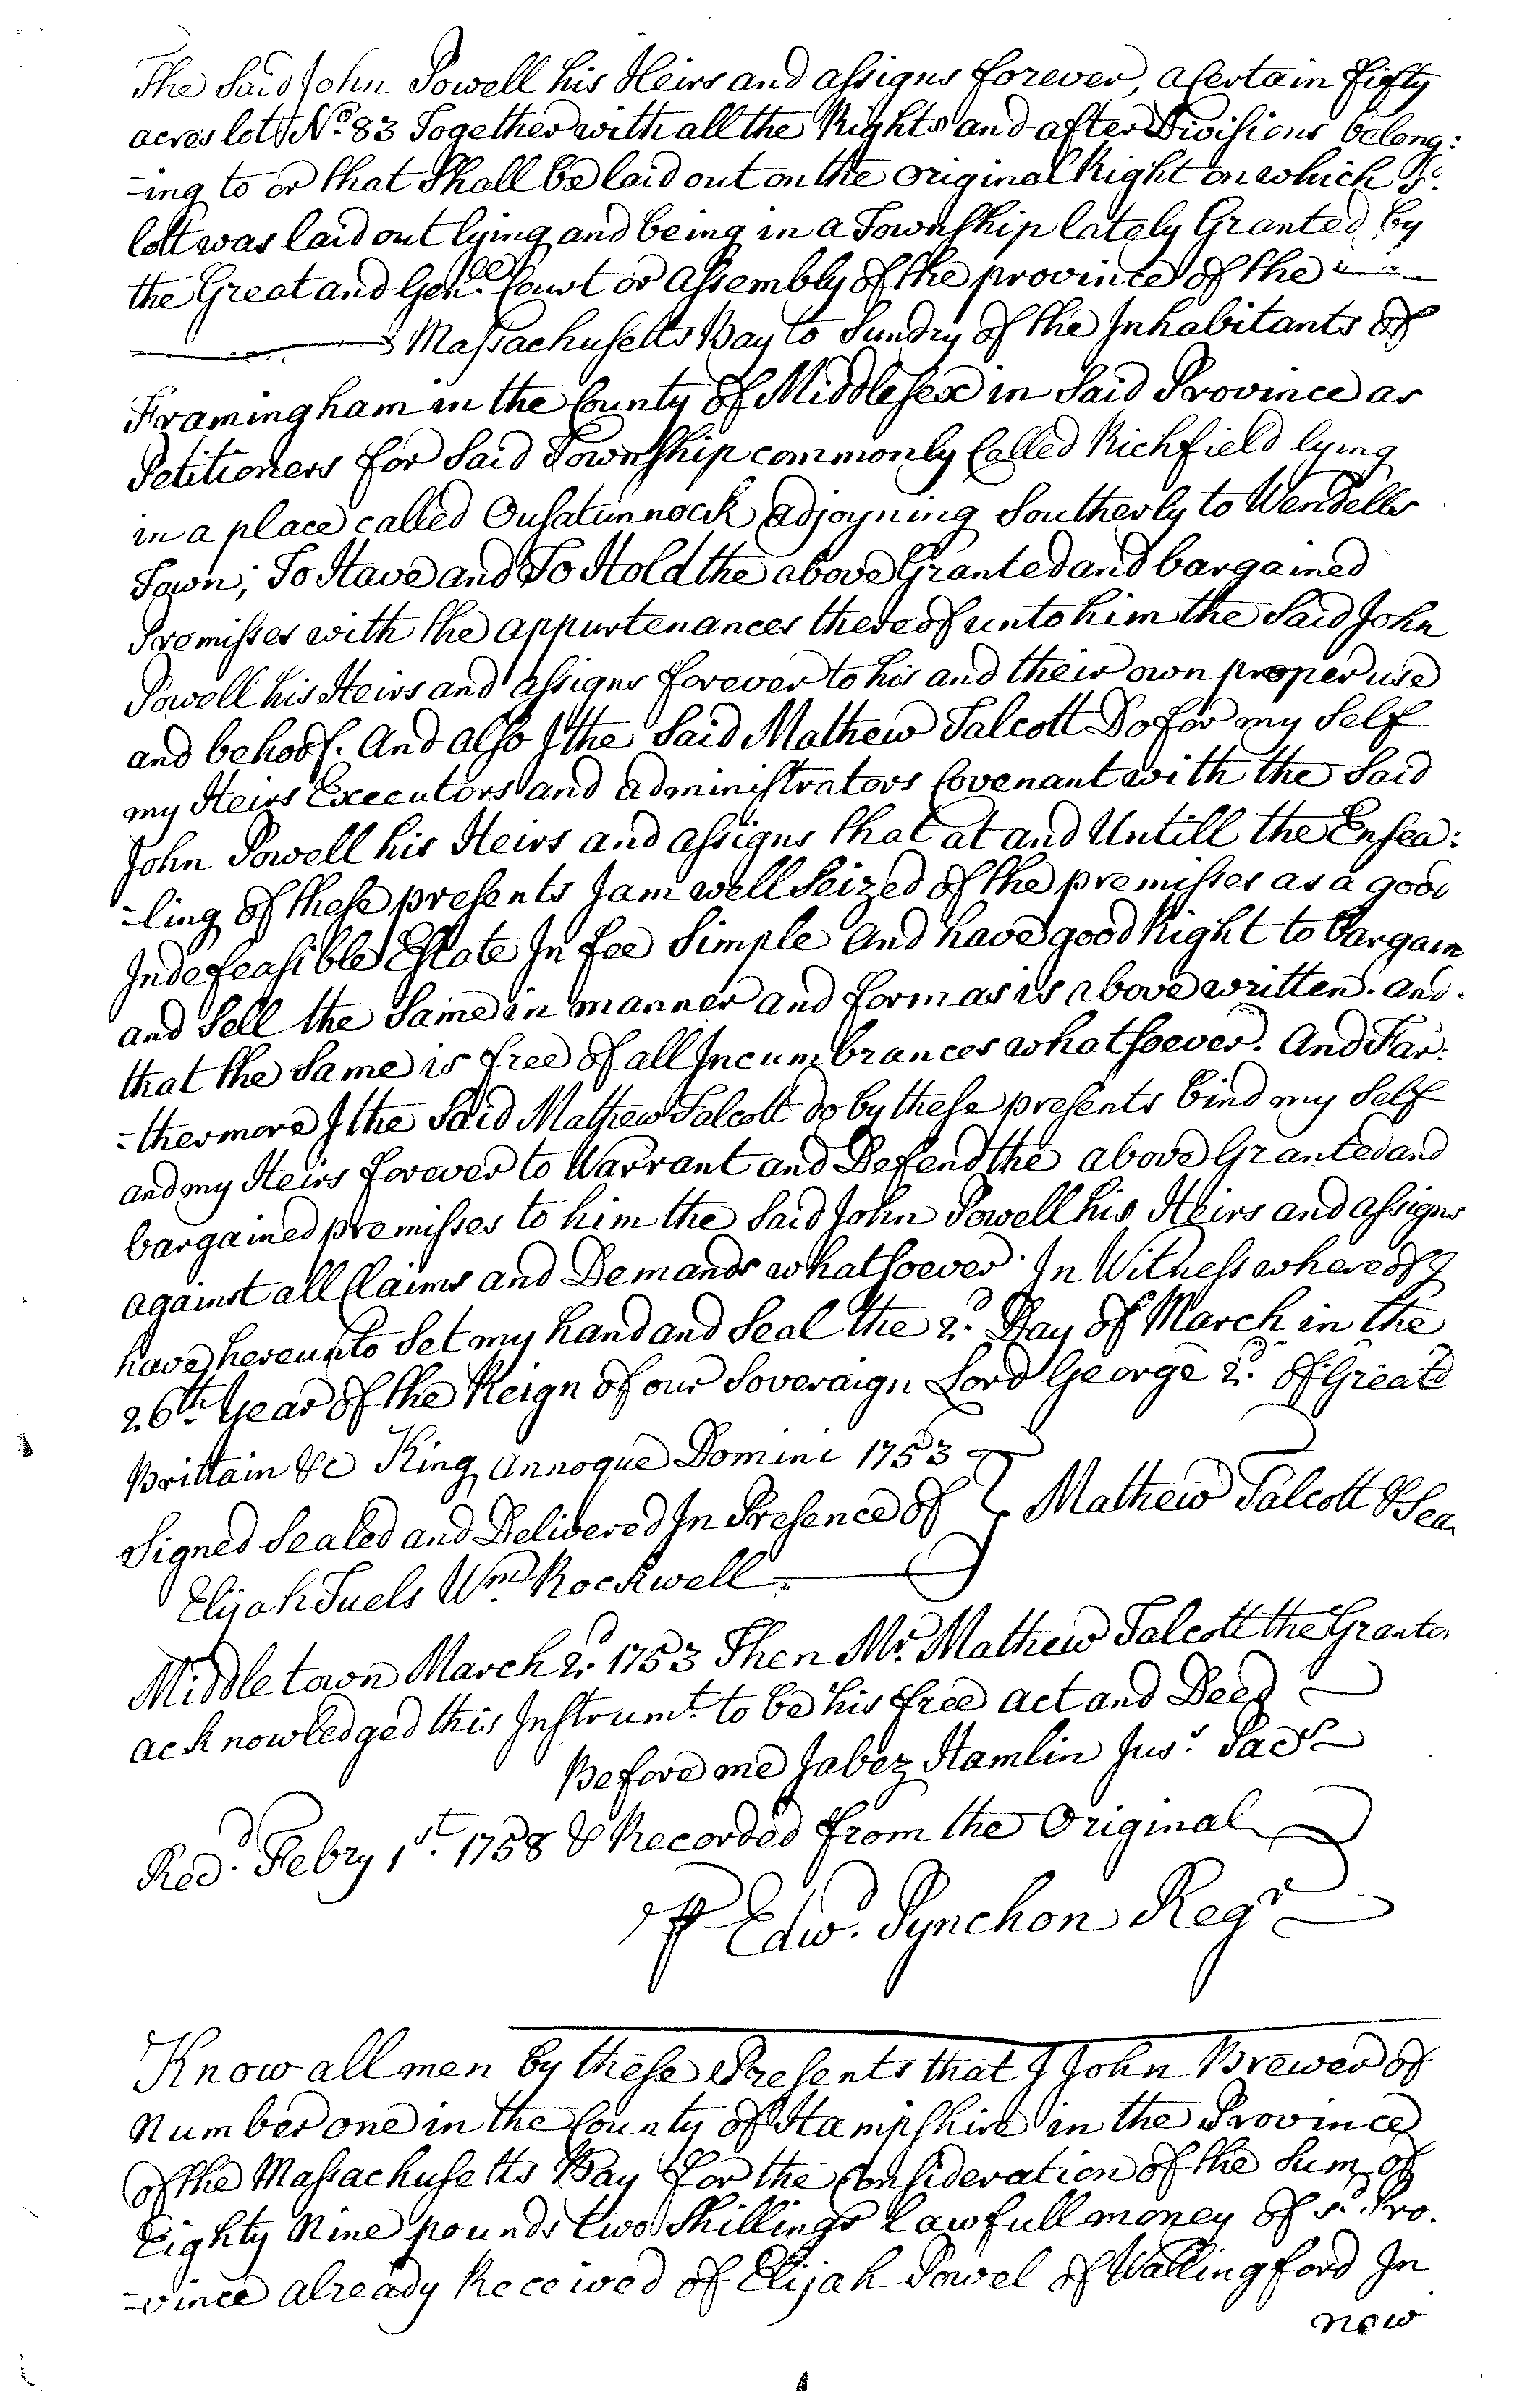 The Said John Powell his Heirs and assigns forever, a Certain fifty
acres lott No. 83 Together with all the Rights and after Divisions belong:
-ing to or that Shall be laid out on the Original Right on which sd.
lott was laid out lying and being in a Township lately Granted by
the Great and Genll. Court or Assembly of the province of the
Massachusetts Bay to Sundry of the Inhabitants of
Framingham in the County of Middlesex in Said Province as
Petitioners for Said Township commonly Called Richfield lying
in a place called Ousatunnock adjoyning Southerly to Wendells
Town; To Have and To Hold the above Granted and bargained
Premisses with the appurtenances thereof unto him the Said John
Powell his Heirs and assigns forever to his and their own proper use
and behoof. And also I the Said Mathew Talcott Do for my Self
my Heirs Executors and administrators Covenant with the Said
John Powell his Heirs and assigns that at and Untill the Ensea:
-ling of these presents I am well Seized of the premisses as a good
Indefeasible Estate In fee Simple And have good Right to bargain
and Sell the Same in manner and form as is above written. and
that the Same is free of all Incumbrances whatsoever. And Far:
-thermore I the Said Mathew Talcott do by these presents bind my Self
and my Heirs forever to Warrant and Defend the above Granted and
bargained premisses to him the Said John Powell his Heirs and assigns
against all Claims and Demands whatsoever. In Witness whereof I
have hereunto Set my hand and Seal the 2d. Day of March in the
26th. Year of the Reign of our Soveraign Lord George 2d. of Great
Brittain &c King Annoque Domini 1753
Signed Sealed and Delivered In Presence of } Mathew Talcott & Sea
Elijah Tuels Wm. Rockwell
Middletown March 2d. 1753 Then Mr. Mathew Talcott the Grantor
acknowledged this Instrumt. to be his free act and Deed
Before me Jabez Hamlin Jus: Pacs
Red. Febry 1st. 1758 & Recorded from the Original
P Edwd. Pynchon Regr
Know all men by these Presents that I John Brewer of
Number one in the County of Hampshire in the Province
of the Massachusetts Bay for the Consideration of the Sum of
Eighty Nine pounds two Shillings Lawfull money of sd. Pro.
-vince already Received of Elijah Powel of Wallingford In
New